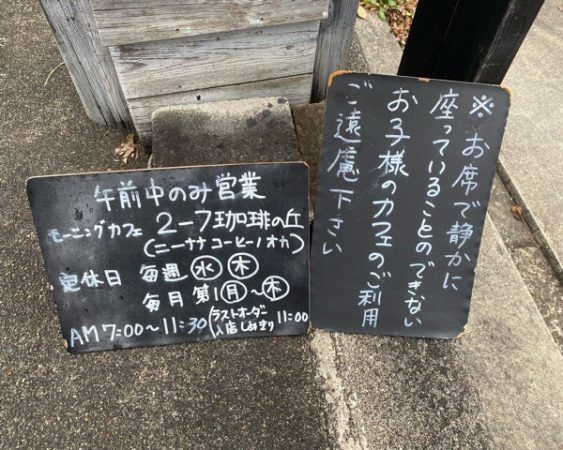 午前中のみ営業
モーニングカフェ 2-7珈琲の丘
(ニーナナ コーヒーノオカ)
定休日 毎週 水 木
毎月 第1 月~木
AM 7:00~11:30 (ラストオーダー 11:00
入店しめきり
※お席で静かに
座っていることのできない
お子様のカフェのご利用
ご遠慮下さい